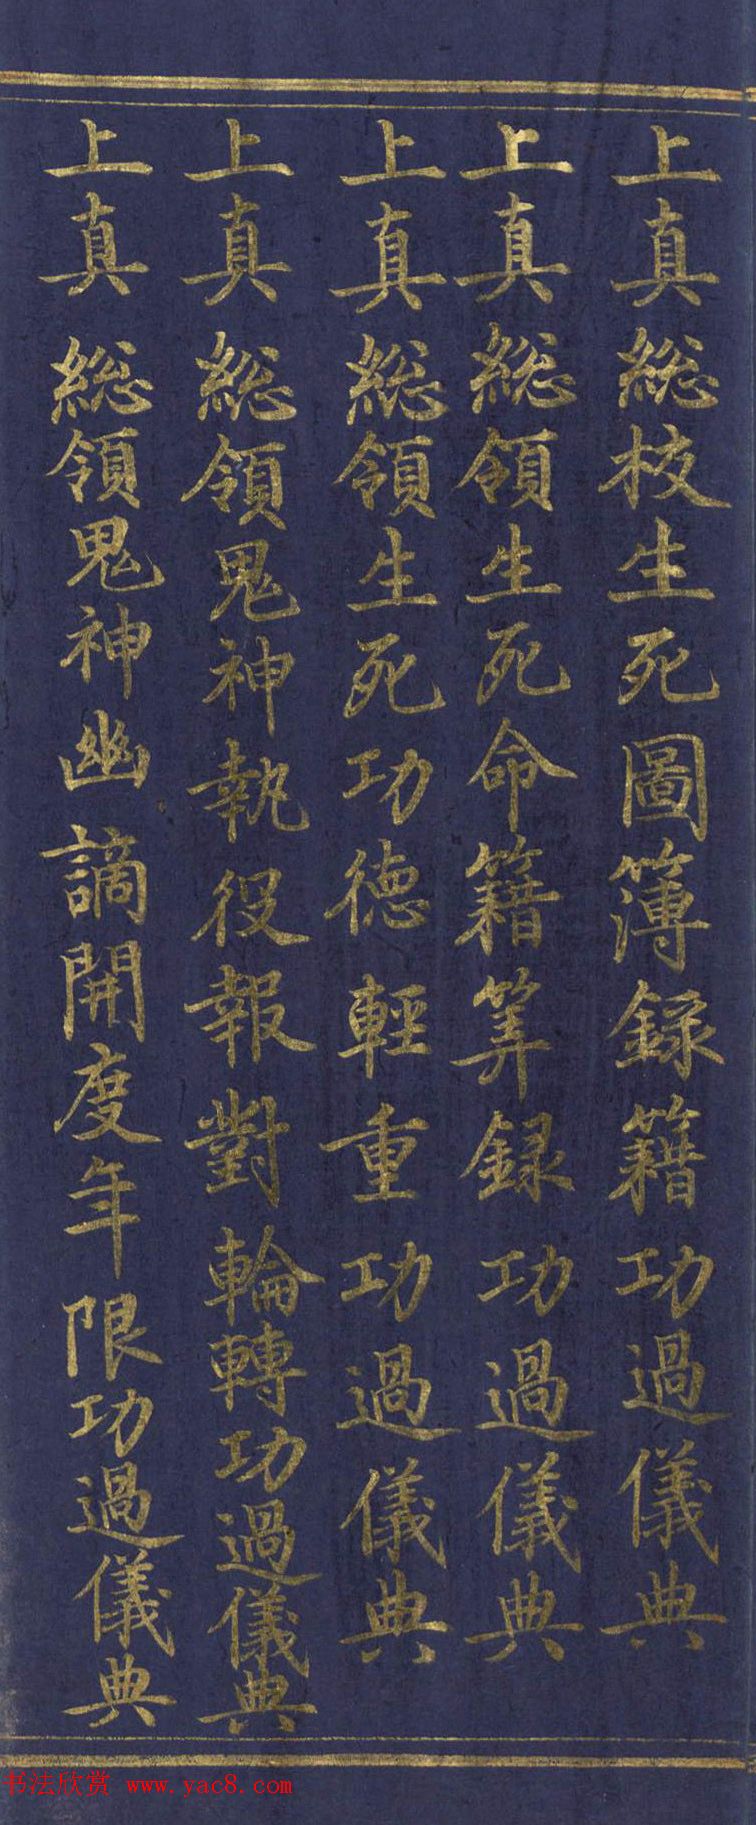 上真総校生死圖簿録籍功過儀典
上真総領生死命籍筭録功過儀典
上真総領生死功德輕重功過儀典
上真総領鬼神執役報對輪轉功過儀典
上真総領鬼神幽謫開度年限功過儀典
书法欣赏 www.yac8.com